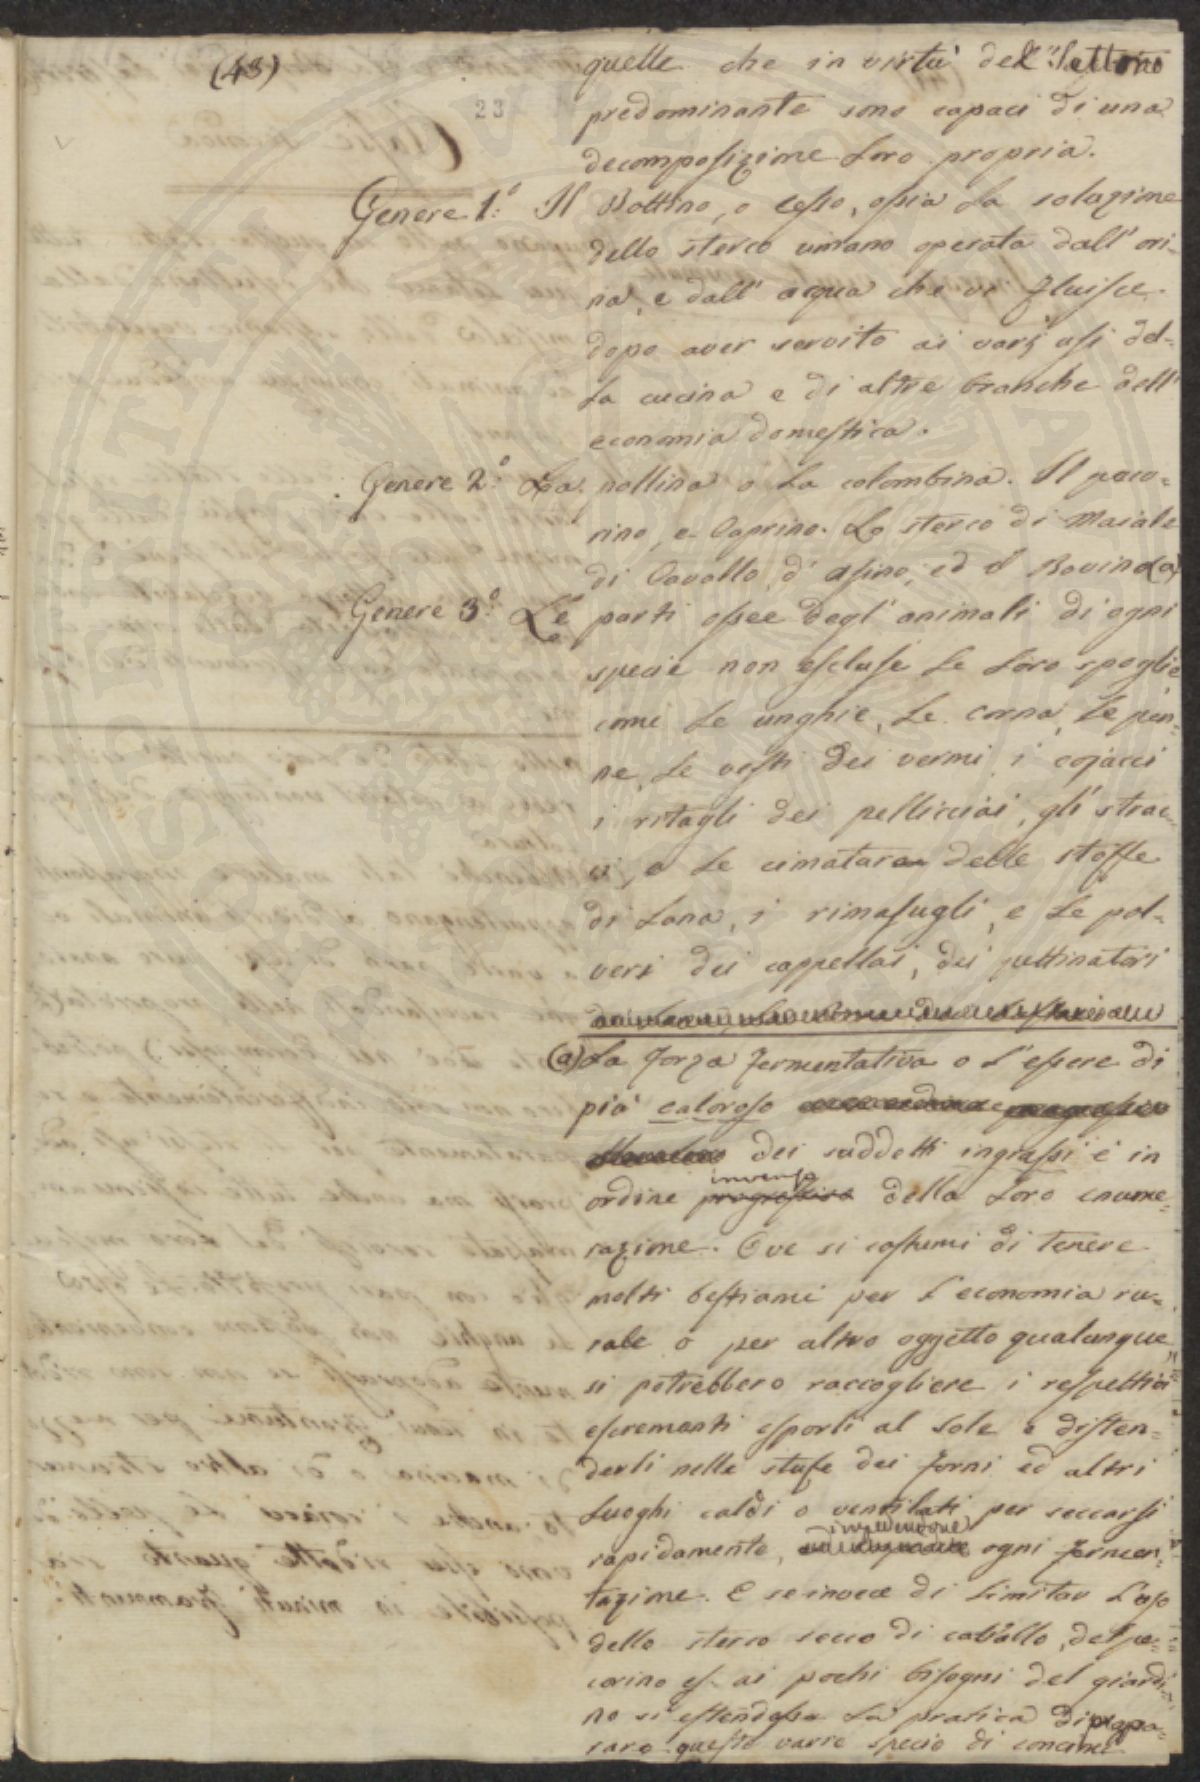 (43)
23
quelle che in virtù del Settono
predominante sono capaci di una
decomposizione loro propria.
Genere 1.º Il Bottino, o cesso, ossia la soluzione
dello sterco umano operata dall' ori-
na, e dall' acqua che vi fluisce
dopo aver servito ai varj usi del-
la cucina e di altre branche dell'
economia domestica.
Genere 2.º La pollina o la colombina. Il peco-
rino, e Caprino. Lo sterco di Maiale
di Cavallo, d' asino, ed il Bovino (a)
Genere 3.º Le parti ossee degl' animali di ogni
specie non escluse le loro spoglie
come le unghie, le corna, le pen-
ne, le vesti dei vermi, i cojacci
i ritagli dei pellicciai, gli strac-
ci, o le cimature delle stoffe
di lana, i rimasugli, e le pol-
veri dei cappellai, dei pettinatori
(a) La forza fermentativa o l'essere di
più caloroso
dei suddetti ingrassi è in
inverso
ordine progressivo della loro enume-
razione. Ove si costumi di tenere
molti bestiami per l'economia ru-
rale o per altro oggetto qualunque
si potrebbero raccogliere i respettivi
escrementi esporli al sole e disten-
derli nelle stufe dei forni ed altri
luoghi caldi o ventilati per seccarsi
rapidamente, ogni fermen-
tazione. E se invece di limitar l'uso
dello sterco secco di cavallo, del pe-
corino ai pochi bisogni del giardi-
no si estendesse la pratica di prepa-
rare queste varie specie di concimi